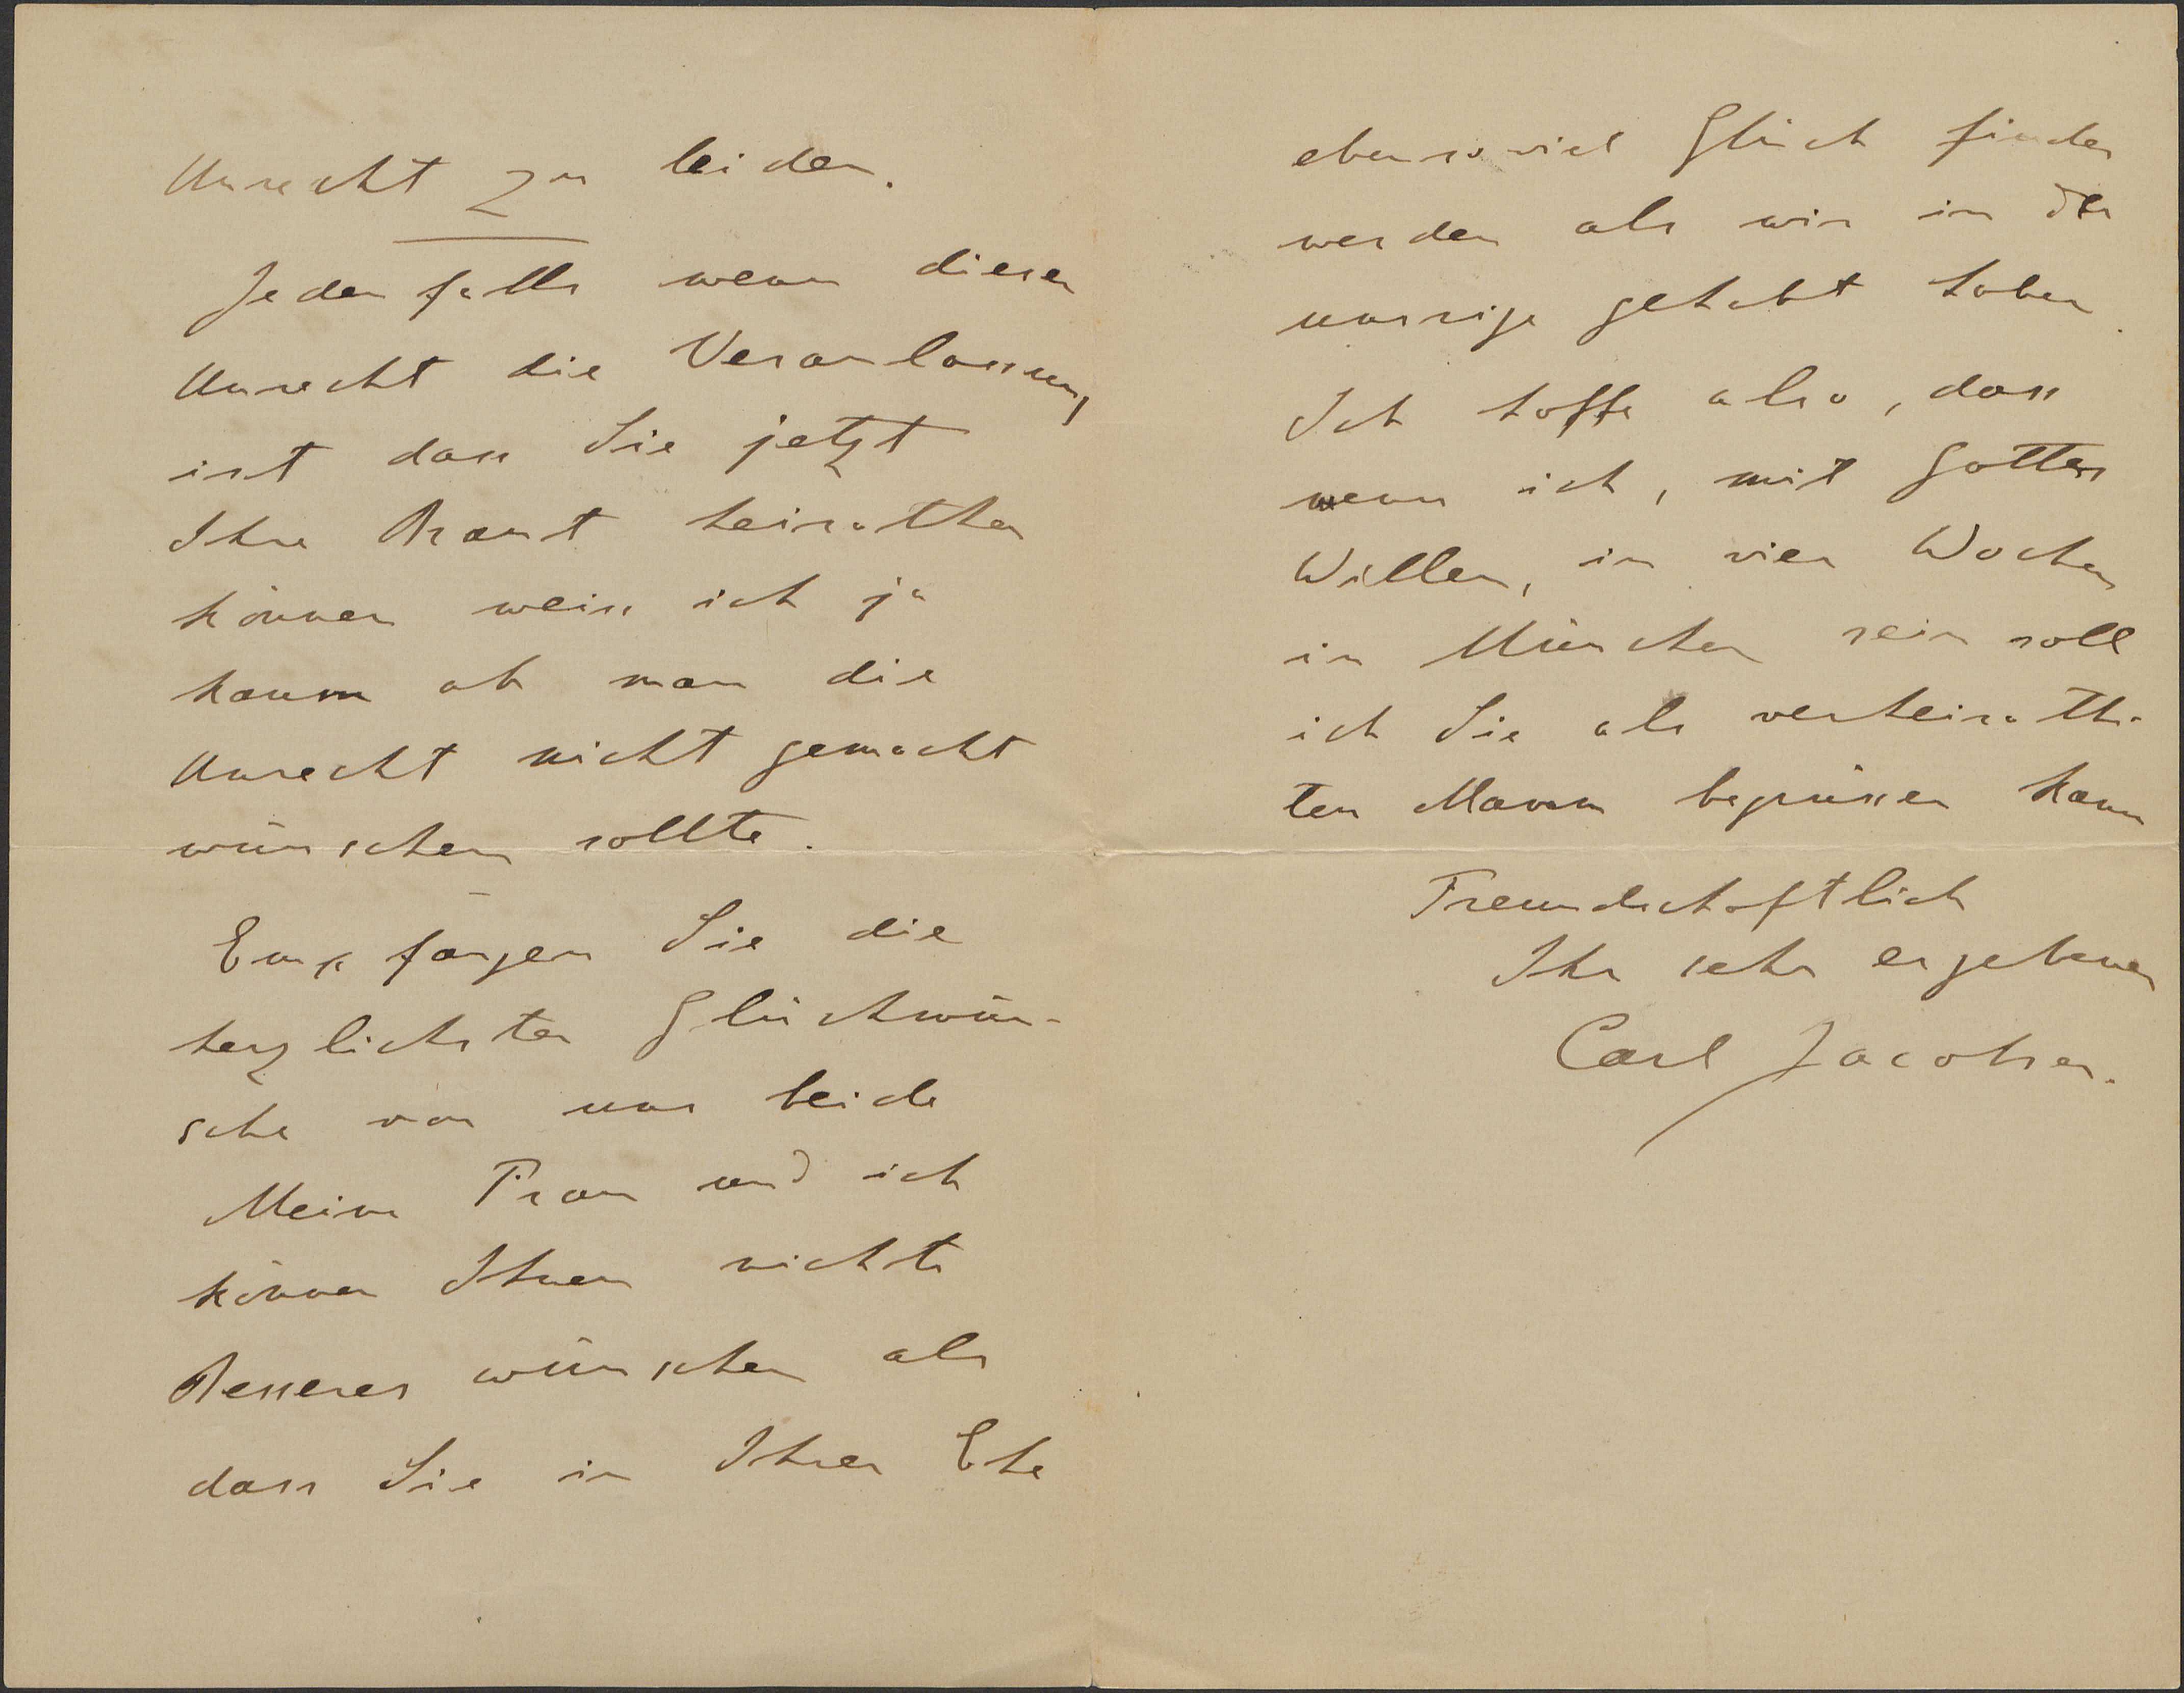 Unrecht zu leiden.
Jedenfalls wenn dieser
Unrecht die Veranlassung
ist dass Sie jetzt
Ihre Braut heirathen
können weiss ich ja
kaum ob man die
Unrecht nicht gemacht
wünschen sollte.
Empfangen Sie die
herzlichsten Glückwün-
sche von uns beide
Meine Frau und ich
können Ihnen nichts
Besseres wünschen als
dass Sie in Ihrer Ehe
ebensoviel Glück finden
werden als wir in der
unsrige gehabt haben.
Ich hoffe also, dass
wenn ich, mit Gottes
Willen, in vier Wochen
in München sein soll
ich Sie als verheirathe-
ten Mann begrüssen kann
Freundschaftlich
Ihr sehr ergebener
Carl Jacobsen.